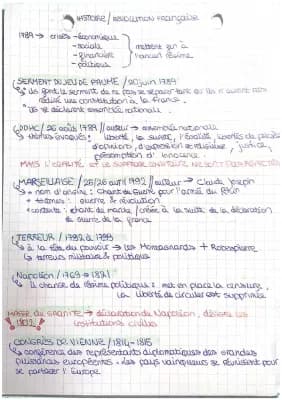 HISTOIRE / REVOLUTION FRANÇAISE
1789 → crises - économique
- sociale
- financière
- politique
mettent fin à
l'ancien régime
SERMENT DU JEU DE PAUME / 20 juin 1789
ils font le serment de ne pas se séparer tant qu'ils n'auront pas
rédigé une constitution à la France.
ils se déclarent assemblée nationale.
DDHC / 26 août 1789 // auteur → assemblée nationale
thèmes évoqués : liberté, la sureté, l'égalité, libertés de
d'opinion, d'expression religieuse, justice,
présomption d'innocence.
MAIS L'ÉGALITÉ ET LE NE SONT PAS RESPECTÉS
MARSEILLAISE / 25/26 avril 1792 // auteur → Claude Joseph
+ nom d'origine : Chant de Guerre pour l'armée du Rhin
+ thèmes : guerre & révolution
+ contexte : chant de marche / créée à la suite de la déclaration
de guerre de la france
TERREUR / 1792 à 1793
à la tête du pouvoir → les Montagnards + Robespierre
terreurs militaire & politique
Napoléon / 1769 → 1821
Il change de régime politique : met en place la censure,
la liberté de circuler est supprimée
MASSE DE GRANITE → déclaration de Napoléon, désigne les
1802 institutions civiles
CONGRÈS DE VIENNE / 1814-1815
conférence des représentants diplomatiques des grandes
puissances européennes. Les pays vainqueurs se réunissent pour
se partager l'Europe.